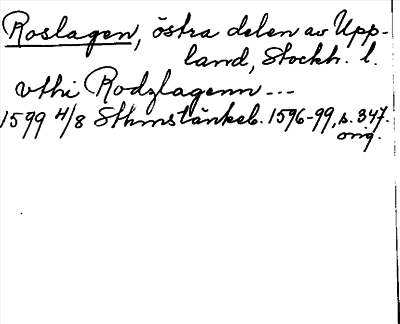 Roslagen, östra delen av Upp-
land, Stockh. l.
vthi Rodzlagenn ---
1599 4/8 Sthmstänkeb. 1596-99, s. 347.
orig.